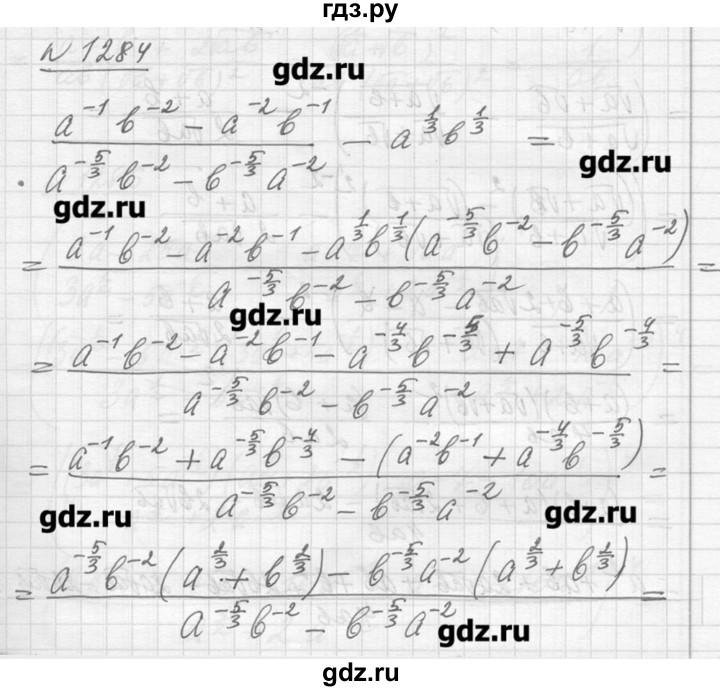 гдз.ру
N 1284
gdz.ru
a^{-1} b^{-2} - a^{-2} b^{-1} / a^{-5/3} b^{-2} - b^{-5/3} a^{-2} - a^{1/3} b^{1/3} =
gdz.ru
gdz.ru
= a^{-1} b^{-2} - a^{-2} b^{-1} - a^{1/3} b^{1/3} (a^{-5/3} b^{-2} - b^{-5/3} a^{-2}) / a^{-5/3} b^{-2} - b^{-5/3} a^{-2} =
gdz.ru
= a^{-1} b^{-2} - a^{-2} b^{-1} - a^{-4/3} b^{-5/3} + a^{-5/3} b^{-4/3} / a^{-5/3} b^{-2} - b^{-5/3} a^{-2} =
= a^{-1} b^{-2} + a^{-5/3} b^{-4/3} - (a^{-2} b^{-1} + a^{-4/3} b^{-5/3}) / a^{-5/3} b^{-2} - b^{-5/3} a^{-2} =
gdz.ru
gdz.ru
= a^{-5/3} b^{-2} (a^{2/3} + b^{2/3}) - b^{-5/3} a^{-2} (a^{2/3} + b^{2/3}) / a^{-5/3} b^{-2} - b^{-5/3} a^{-2} =
gdz.ru
gdz.ru